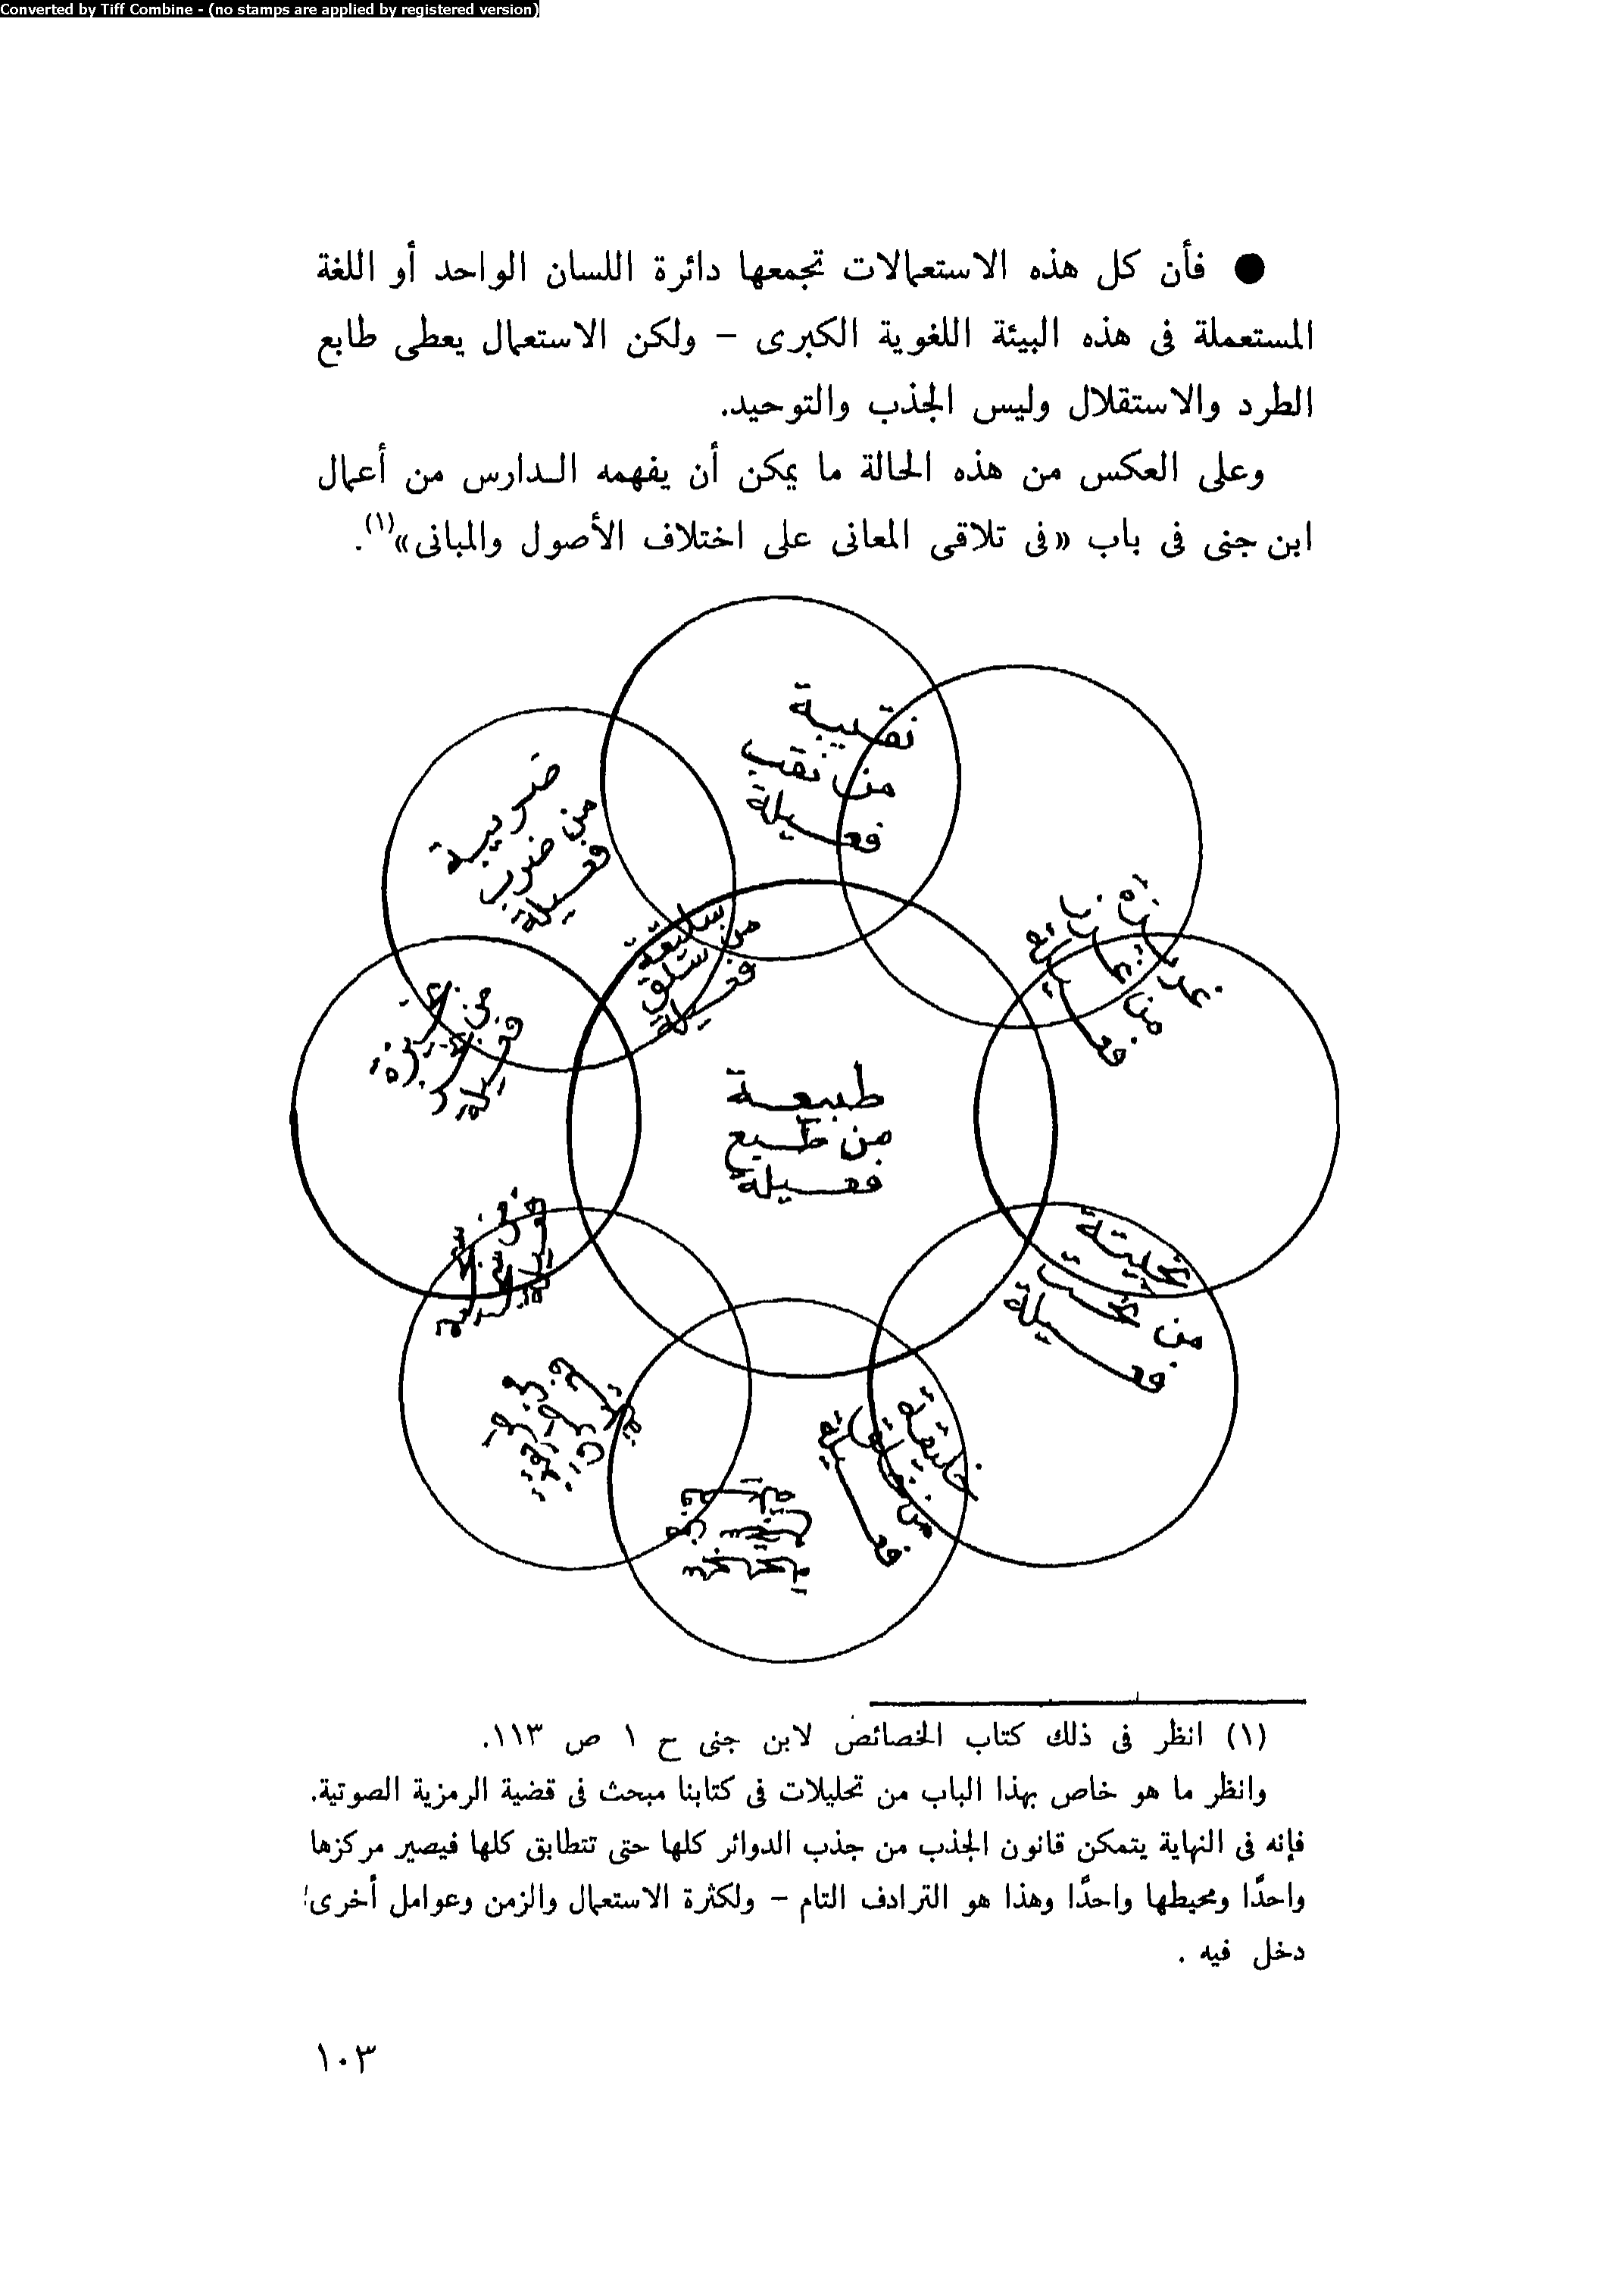 Converted by Tiff Combine - (no stamps are applied by registered version)
● فأن كل هذه الاستعمالات تجمعها دائرة اللسان الواحد أو اللغة
المستعملة فى هذه البيئة اللغوية الكبرى – ولكن الاستعمال يعطى طابع
الطرد والاستقلال وليس الجذب والتوحيد.
وعلى العكس من هذه الحالة ما يمكن أن يفهمه الـدارس من أعمال
ابن جنى فى باب «فى تلاقى المعانى على اختلاف الأصول والمبانى»(١).
نقيبة
من نقب
فعيلة
ضريبة
من ضرب
فعيلة
سليقة
من سلق
فعيلة
غريزة
من غرز
فعيلة
من
فعيلة
طبيعة
من طبع
فعيلة
نحيتة
من نحت
فعيلة
خليقة
من خلق
فعيلة
(١) انظر فى ذلك كتاب الخصائص لابن جنى ح ١ ص ١١٣.
وانظر ما هو خاص بهذا الباب من تحليلات فى كتابنا مبحث فى قضية الرمزية الصوتية.
فإنه فى النهاية يتمكن قانون الجذب من جذب الدوائر كلها حتى تتطابق كلها فيصير مركزها
واحدًا ومحيطها واحدًا وهذا هو الترادف التام – ولكثرة الاستعمال والزمن وعوامل أخرى؛
دخل فيه .
١٠٣